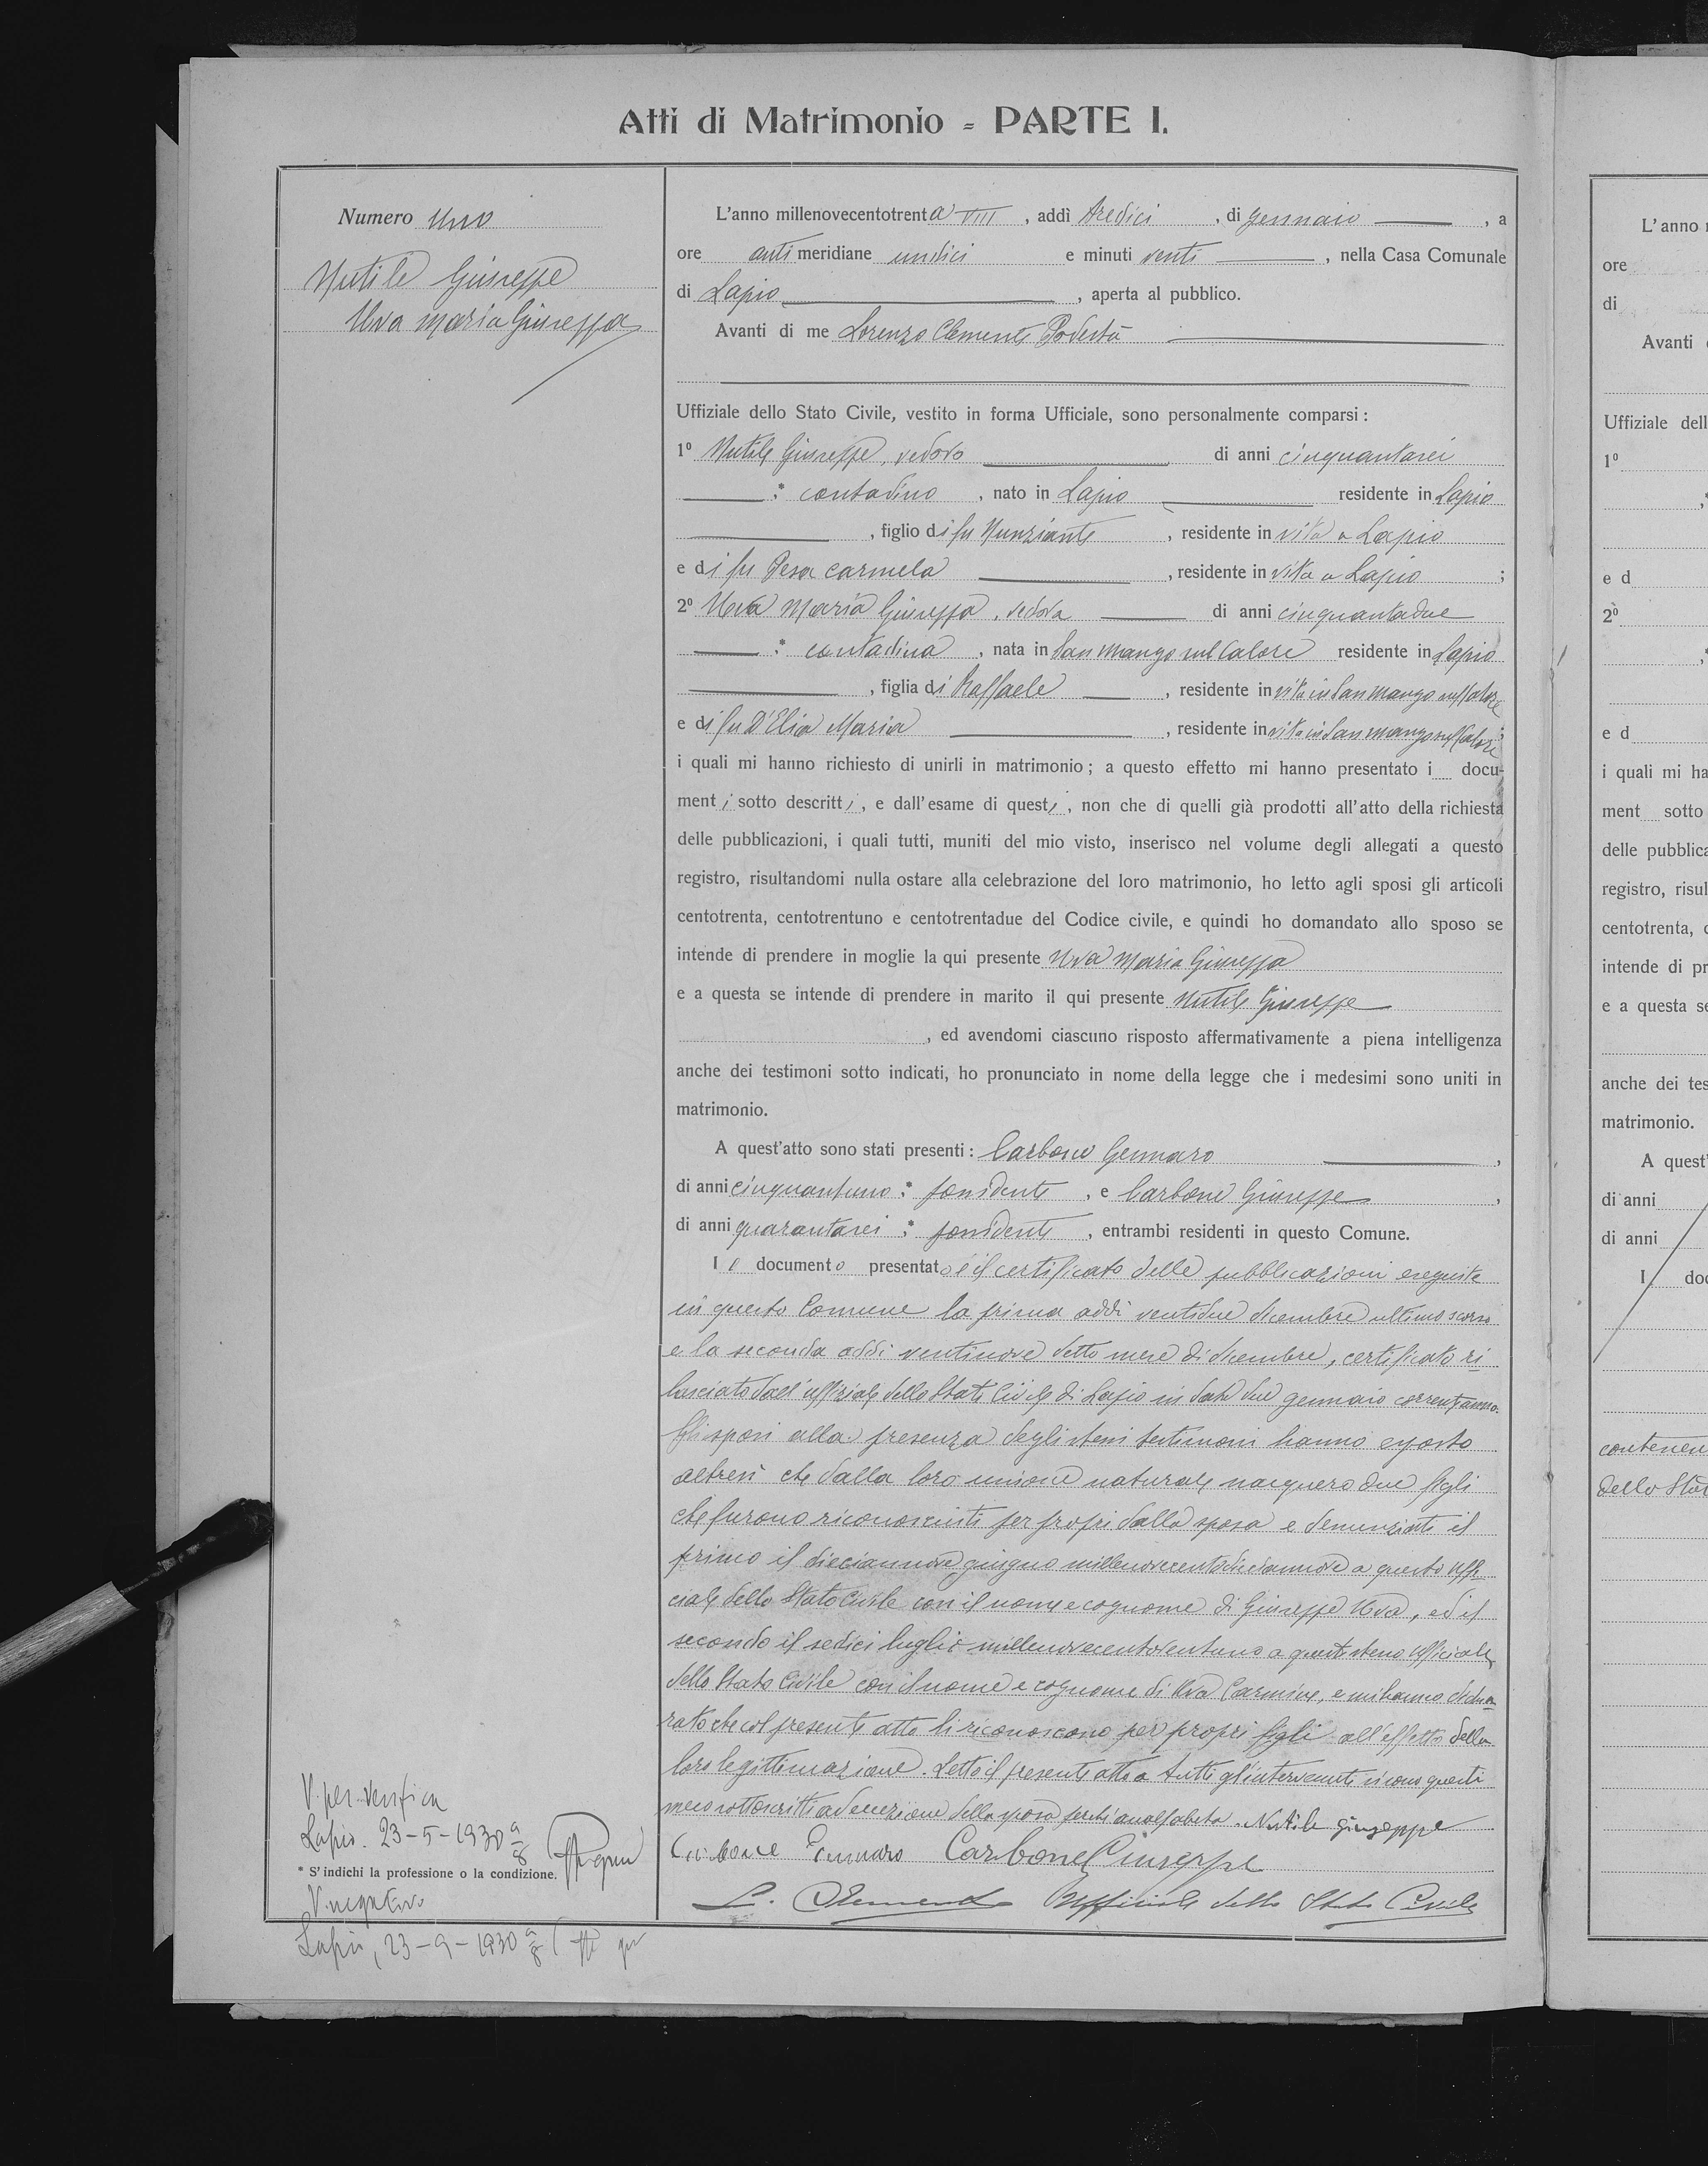 Atti di Matrimonio = PARTE I.
Numero Uno
Nutile Giuseppe
Uva Maria Giuseppa
L'anno millenovecentotrenta VIII, addì tredici, di gennaio, a
ore antimeridiane undici e minuti venti, nella Casa Comunale
di Lapio, aperta al pubblico.
Avanti di me Lorenzo Clemente Podestà
Uffiziale dello Stato Civile, vestito in forma Ufficiale, sono personalmente comparsi:
1º Nutile Giuseppe, vedovo di anni cinquantasei
* contadino, nato in Lapio residente in Lapio
, figlio di fu Nunziante, residente in vita a Lapio
e di fu Pesa Carmela, residente in vita a Lapio;
2º Uva Maria Giuseppa, vedova di anni cinquantadue
* contadina, nata in San Mango sul Calore residente in Lapio
, figlia di Raffaele, residente in vita in San Mango sul Calore
e di fu D'Elia Maria, residente in vita in San Mango sul Calore;
i quali mi hanno richiesto di unirli in matrimonio; a questo effetto mi hanno presentato i docu-
menti sotto descritti, e dall'esame di questi, non che di quelli già prodotti all'atto della richiesta
delle pubblicazioni, i quali tutti, muniti del mio visto, inserisco nel volume degli allegati a questo
registro, risultandomi nulla ostare alla celebrazione del loro matrimonio, ho letto agli sposi gli articoli
centotrenta, centotrentuno e centotrentadue del Codice civile, e quindi ho domandato allo sposo se
intende di prendere in moglie la qui presente Uva Maria Giuseppa
e a questa se intende di prendere in marito il qui presente Nutile Giuseppe
, ed avendomi ciascuno risposto affermativamente a piena intelligenza
anche dei testimoni sotto indicati, ho pronunciato in nome della legge che i medesimi sono uniti in
matrimonio.
A quest'atto sono stati presenti: Carbone Gennaro,
di anni cinquantuno * possidente, e Carbone Giuseppe,
di anni quarantasei * possidente, entrambi residenti in questo Comune.
Il documento presentato è il certificato delle pubblicazioni eseguite
in questo Comune la prima addì ventidue dicembre ultimo scorso
e la seconda addì ventinove detto mese di dicembre, certificato ri
lasciato dall'uffiziale dello Stato Civile di Lapio in data due gennaio corrente anno.
Gli sposi alla presenza degli stessi testimoni hanno esposto
altresì che dalla loro unione naturale nacquero due figli
che furono riconosciuti per propri dalla sposa e denunziati il
primo il diciannove giugno millenovecentodiciannove a questo uffi-
ciale dello Stato Civile con il nome e cognome di Giuseppe Uva, ed il
secondo il sedici luglio millenovecentoventuno a questo stesso ufficiale
dello Stato Civile con il nome e cognome di Uva Carmine, e mi hanno dichia-
rato che col presente atto li riconoscono per propri figli all'effetto della
loro legittimazione. Letto il presente atto a tutti gl'intervenuti si sono questi
meco sottoscritti ad eccezione della sposa perché analfabeta. Nutile Giuseppe
Carbone Gennaro Carbone Giuseppe
L. Clemente Ufficiale dello Stato Civile
V. per verifica
Lapio. 23-5-1930 a 8
* S'indichi la professione o la condizione.
V. negativo
Lapio, 23-9-1930 a 8
L'anno
ore
di
Avanti
Uffiziale dell
1º
e d
2º
e d
i quali mi ha
ment sotto
delle pubblica
registro, risul
centotrenta, c
intende di pr
e a questa se
anche dei tes
matrimonio.
A quest'
di anni
di anni
I doc
contenen
dello Stat